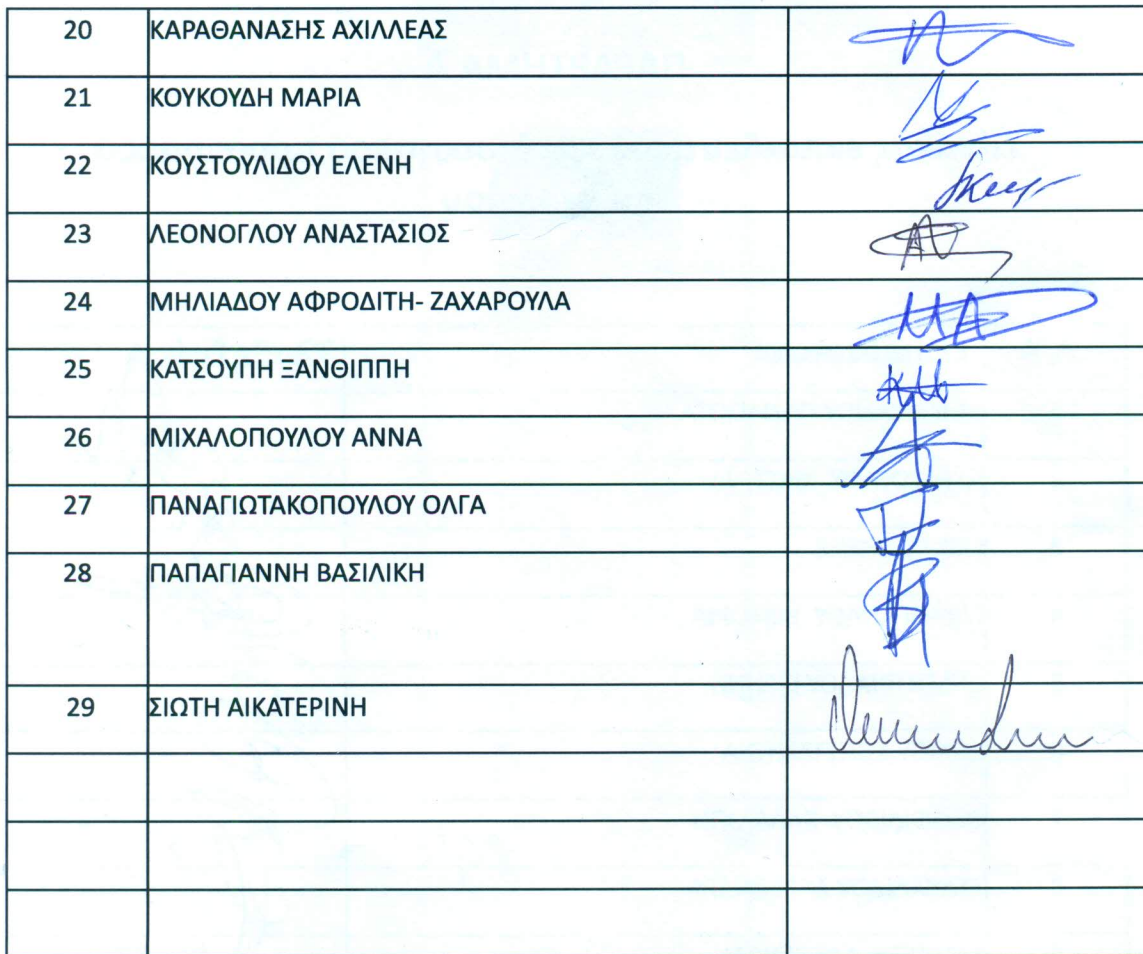 20 ΚΑΡΑΘΑΝΑΣΗΣ ΑΧΙΛΛΕΑΣ
21 ΚΟΥΚΟΥΔΗ ΜΑΡΙΑ
22 ΚΟΥΣΤΟΥΛΙΔΟΥ ΕΛΕΝΗ
23 ΛΕΟΝΟΓΛΟΥ ΑΝΑΣΤΑΣΙΟΣ
24 ΜΗΛΙΑΔΟΥ ΑΦΡΟΔΙΤΗ- ΖΑΧΑΡΟΥΛΑ
25 ΚΑΤΣΟΥΠΗ ΞΑΝΘΙΠΠΗ
26 ΜΙΧΑΛΟΠΟΥΛΟΥ ΑΝΝΑ
27 ΠΑΝΑΓΙΩΤΑΚΟΠΟΥΛΟΥ ΟΛΓΑ
28 ΠΑΠΑΓΙΑΝΝΗ ΒΑΣΙΛΙΚΗ
29 ΣΙΩΤΗ ΑΙΚΑΤΕΡΙΝΗ